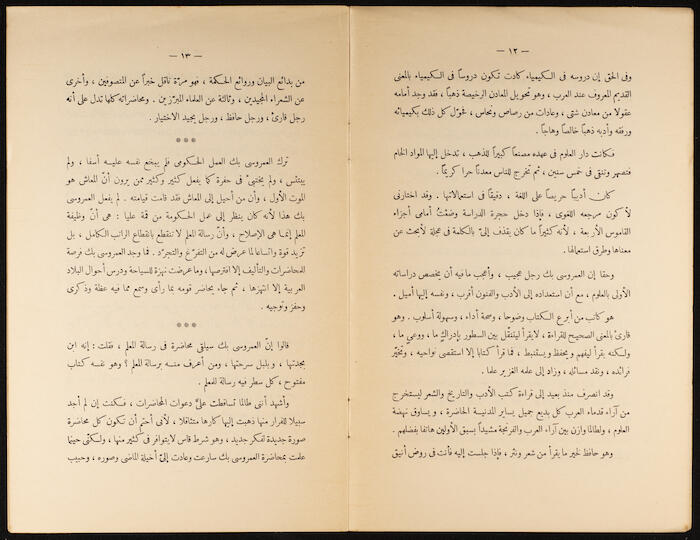 — ١٢ —
وفى الحق إن دروسه فى الكيمياء كادت تكون دروساً فى الكيمياء بالمعنى
القديم المعروف عند العرب ، وهو تحويل المعادن الرخيصة ذهباً ، فقد وجد أمامه
عقولا من معادن شتى ، وعادات من رصاص ونحاس ، فحول كل ذلك بكيميائه
ورفقه وأدبه ذهباً خالصاً وهاجاً .
فكانت دار العلوم فى عهده مصنعاً كبيراً للذهب ، تدخل إليها المواد الخام
فتصهر وتنقى فى خمس سنين ، ثم تخرج للناس معدناً حرا كريماً .
كان أديباً حريصاً على اللغة ، دقيقاً فى استعمالاتها . وقد اختارنى
لأكون مرجعه اللغوى ، فإذا دخل حجرة الدراسة وضعتُ أمامى أجزاء
القاموس الأربعة ، لأنه كثيراً ما كان يقذف إلىّ بالكلمة فى عجلة لأبحث عن
معناها وطرق استعمالها .
وحقا إن العمروسى بك رجل عجيب ، وأعجب ما فيه أن يخصص دراساته
الأولى بالعلوم ، مع أن استعداده إلى الأدب والفنون أقرب ، ونفسه إليها أميل .
هو كاتب من أبرع الكتاب وضوحا ، وصحة أداء ، وسهولة أسلوب . وهو
قارئ بالمعنى الصحيح للقراءة ، لايقرأ ليتنقل بين السطور بإدراكٍ ما ، ووعى ما ،
ولكنه يقرأ ليفهم ويحفظ ويستنبط ، فما قرأ كتابا إلا استقصى نواحيه ، وتخيّر
فرائده ، ونقد مسائله ، وزاد إلى علمه الغزير علما .
وقد انصرف منذ بعيد إلى قراءة كتب الأدب والتاريخ والشعر ليستخرج
من آراء قدماء العرب كل بديع جميل يساير المدنية الحاضرة ، ويساوق نهضة
العلوم ، ولطالما وازن بين آراء العرب والفرنجة مشيداً بسبق الأولين هاتفا بفضلهم .
وهو حافظ لخير ما يقرأ من شعر ونثر ، فإذا جلست إليه فأنت فى روض أنيق
— ١٣ —
من بدائع البيان وروائع الحكمة ، فهو مرّة ناقل خبراً عن المتصوفين ، وأخرى
عن الشعراء المجيدين ، وثالثة عن العلماء المبرّزين . ومحاضراته كلها تدل على أنه
رجل قارئ ، ورجل حافظ ، ورجل يجيد الاختيار .
ترك العمروسى بك العمل الحكومى فلم يبخع نفسه عليه أسفا ، ولم
يبتئس ، ولم يختبئ فى حفرة كما يفعل كثير وكثير ممن يرون أنّ المعاش هو
الموت الأول ، وأن من أحيل إلى المعاش فقد قامت قيامته . لم يفعل العمروسى
بك هذا لأنه كان ينظر إلى عمل الحكومة من قمة عليا : هى أنّ وظيفة
المعلم إنما هى الإصلاح ، وأنّ رسالة المعلم لا تنقطع بانقطاع الراتب الكامل ، بل
تزيد قوة واتساعا لما عرض له من التفرّغ والتجرّد . فما وجد العمروسى بك فرصة
للمحاضرات والتأليف إلا افترصها ، وما عرضت نهزة للسياحة ودرس أحوال البلاد
العربية إلا انتهزها ، ثم جاء يحاضر قومه بما رأى وسمع مما فيه عظة وذكرى
وحفز وتوجيه .
قالوا إنّ العمروسى بك سيلقى محاضرة فى رسالة المعلم ، فقلت : إنه ابن
بجدتها ، وبلبل سرحتها ، ومن أعرف منه برسالة المعلم ؟ وهو نفسه كتاب
مفتوح ، كل سطر فيه رسالة لمعلم .
وأشهد أننى طالما تساقطت علىَّ دعوات المحاضرات ، فكنت إن لم أجد
سبيلا للفرار منها ذهبت إليها كارها متثاقلا ، لأنى أحتم أن تكون كل محاضرة
صورة جديدة لفكر جديد ، وهو شرط قاس لايتوافر فى كثير منها ، ولكنى حينما
علمت بمحاضرة العمروسى بك سارعت وعادت إلىّ أخيلة الماضى وصوره ، وحبيب